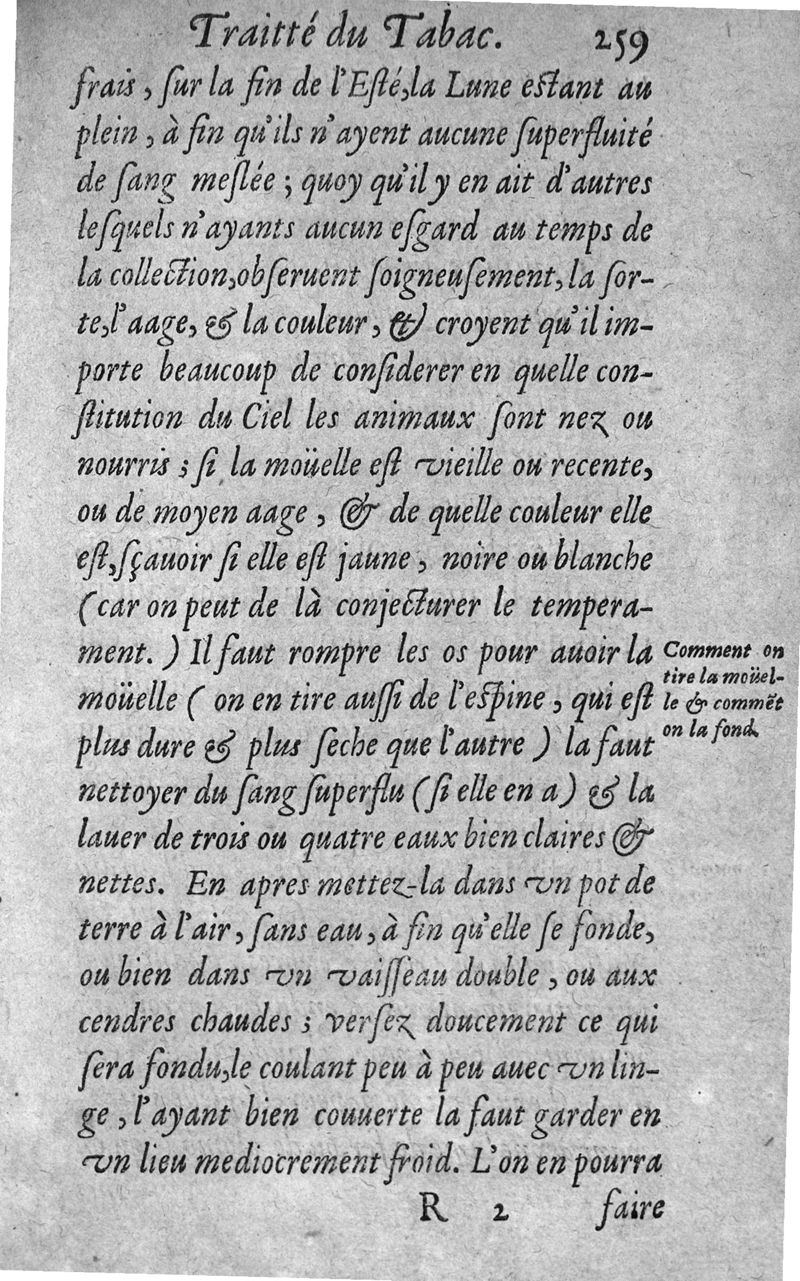 Traitté du Tabac. 259
frais, ſur la fin de l'Eſté, la Lune eſtant au
plein, à fin qu'ils n'ayent aucune ſuperfluité
de ſang meſlée ; quoy qu'il y en ait d'autres
leſquels n'ayants aucun eſgard au temps de
la collection, obſeruent ſoigneuſement, la ſor-
te, l'aage, & la couleur, & croyent qu'il im-
porte beaucoup de conſiderer en quelle con-
ſtitution du Ciel les animaux ſont nez ou
nourris ; ſi la moüelle eſt vieille ou recente,
ou de moyen aage, & de quelle couleur elle
eſt, ſçauoir ſi elle eſt jaune, noire ou blanche
(car on peut de là conjecturer le tempera-
ment.) Il faut rompre les os pour auoir la
moüelle (on en tire auſſi de l'eſpine, qui eſt
plus dure & plus ſeche que l'autre) la faut
nettoyer du ſang ſuperflu (ſi elle en a) & la
lauer de trois ou quatre eaux bien claires &
nettes. En apres mettez-la dans vn pot de
terre à l'air, ſans eau, à fin qu'elle ſe fonde,
ou bien dans vn vaiſſeau double, ou aux
cendres chaudes ; verſez doucement ce qui
ſera fondu, le coulant peu à peu auec vn lin-
ge, l'ayant bien couuerte la faut garder en
vn lieu mediocrement froid. L'on en pourra
R 2 faire
Comment on
tire la moüel-
le & commẽt
on la fond.